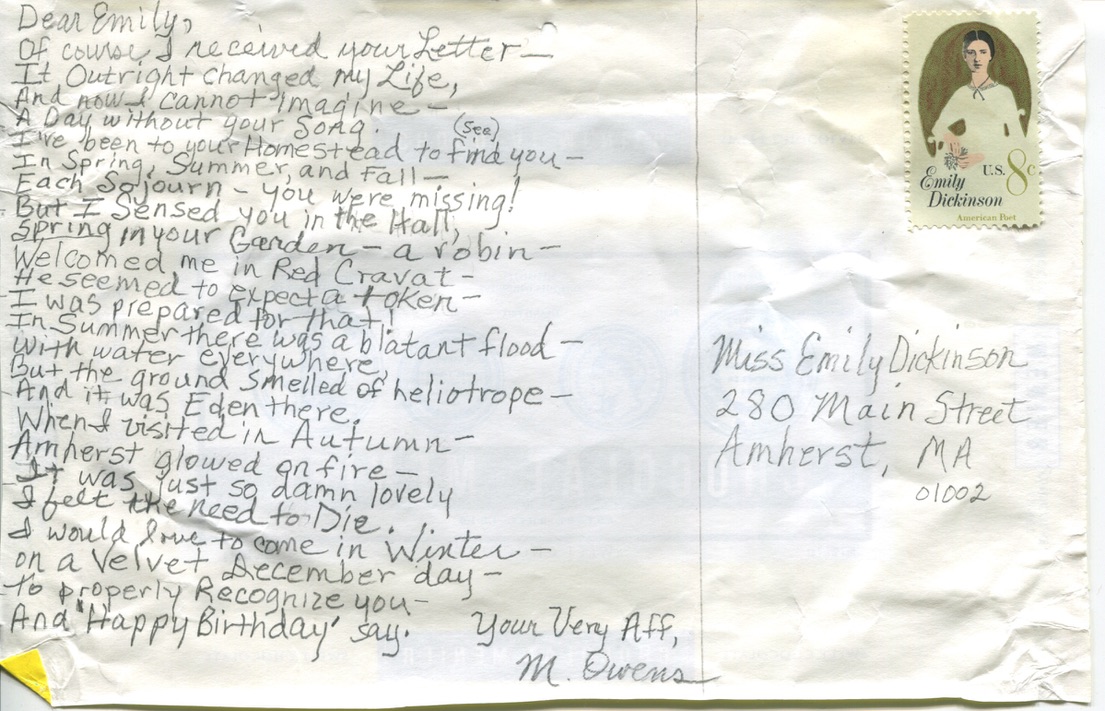 Dear Emily,
Of course I received your Letter—
It Outright changed my Life,
And now I cannot imagine—
A Day without your Song.
(See)
I've been to your Homestead to find you—
In Spring, Summer, and Fall—
Each Sojourn - you were missing!
But I Sensed you in the Hall,
Spring in your Garden — a robin —
Welcomed me in Red Cravat—
He seemed to expect a token—
I was prepared for that!
In Summer there was a blatant flood—
With water everywhere,
But the ground smelled of heliotrope—
And it was Eden there.
When I visited in Autumn—
Amherst glowed on fire—
It was just so damn lovely
I felt the need to Die.
I would love to come in Winter—
on a Velvet December day—
to properly Recognize you—
And "Happy Birthday" say.
Your Very Aff,
M. Owens
Emily
Dickinson
U.S. 8c
American Poet
Miss Emily Dickinson
280 Main Street
Amherst, MA
01002